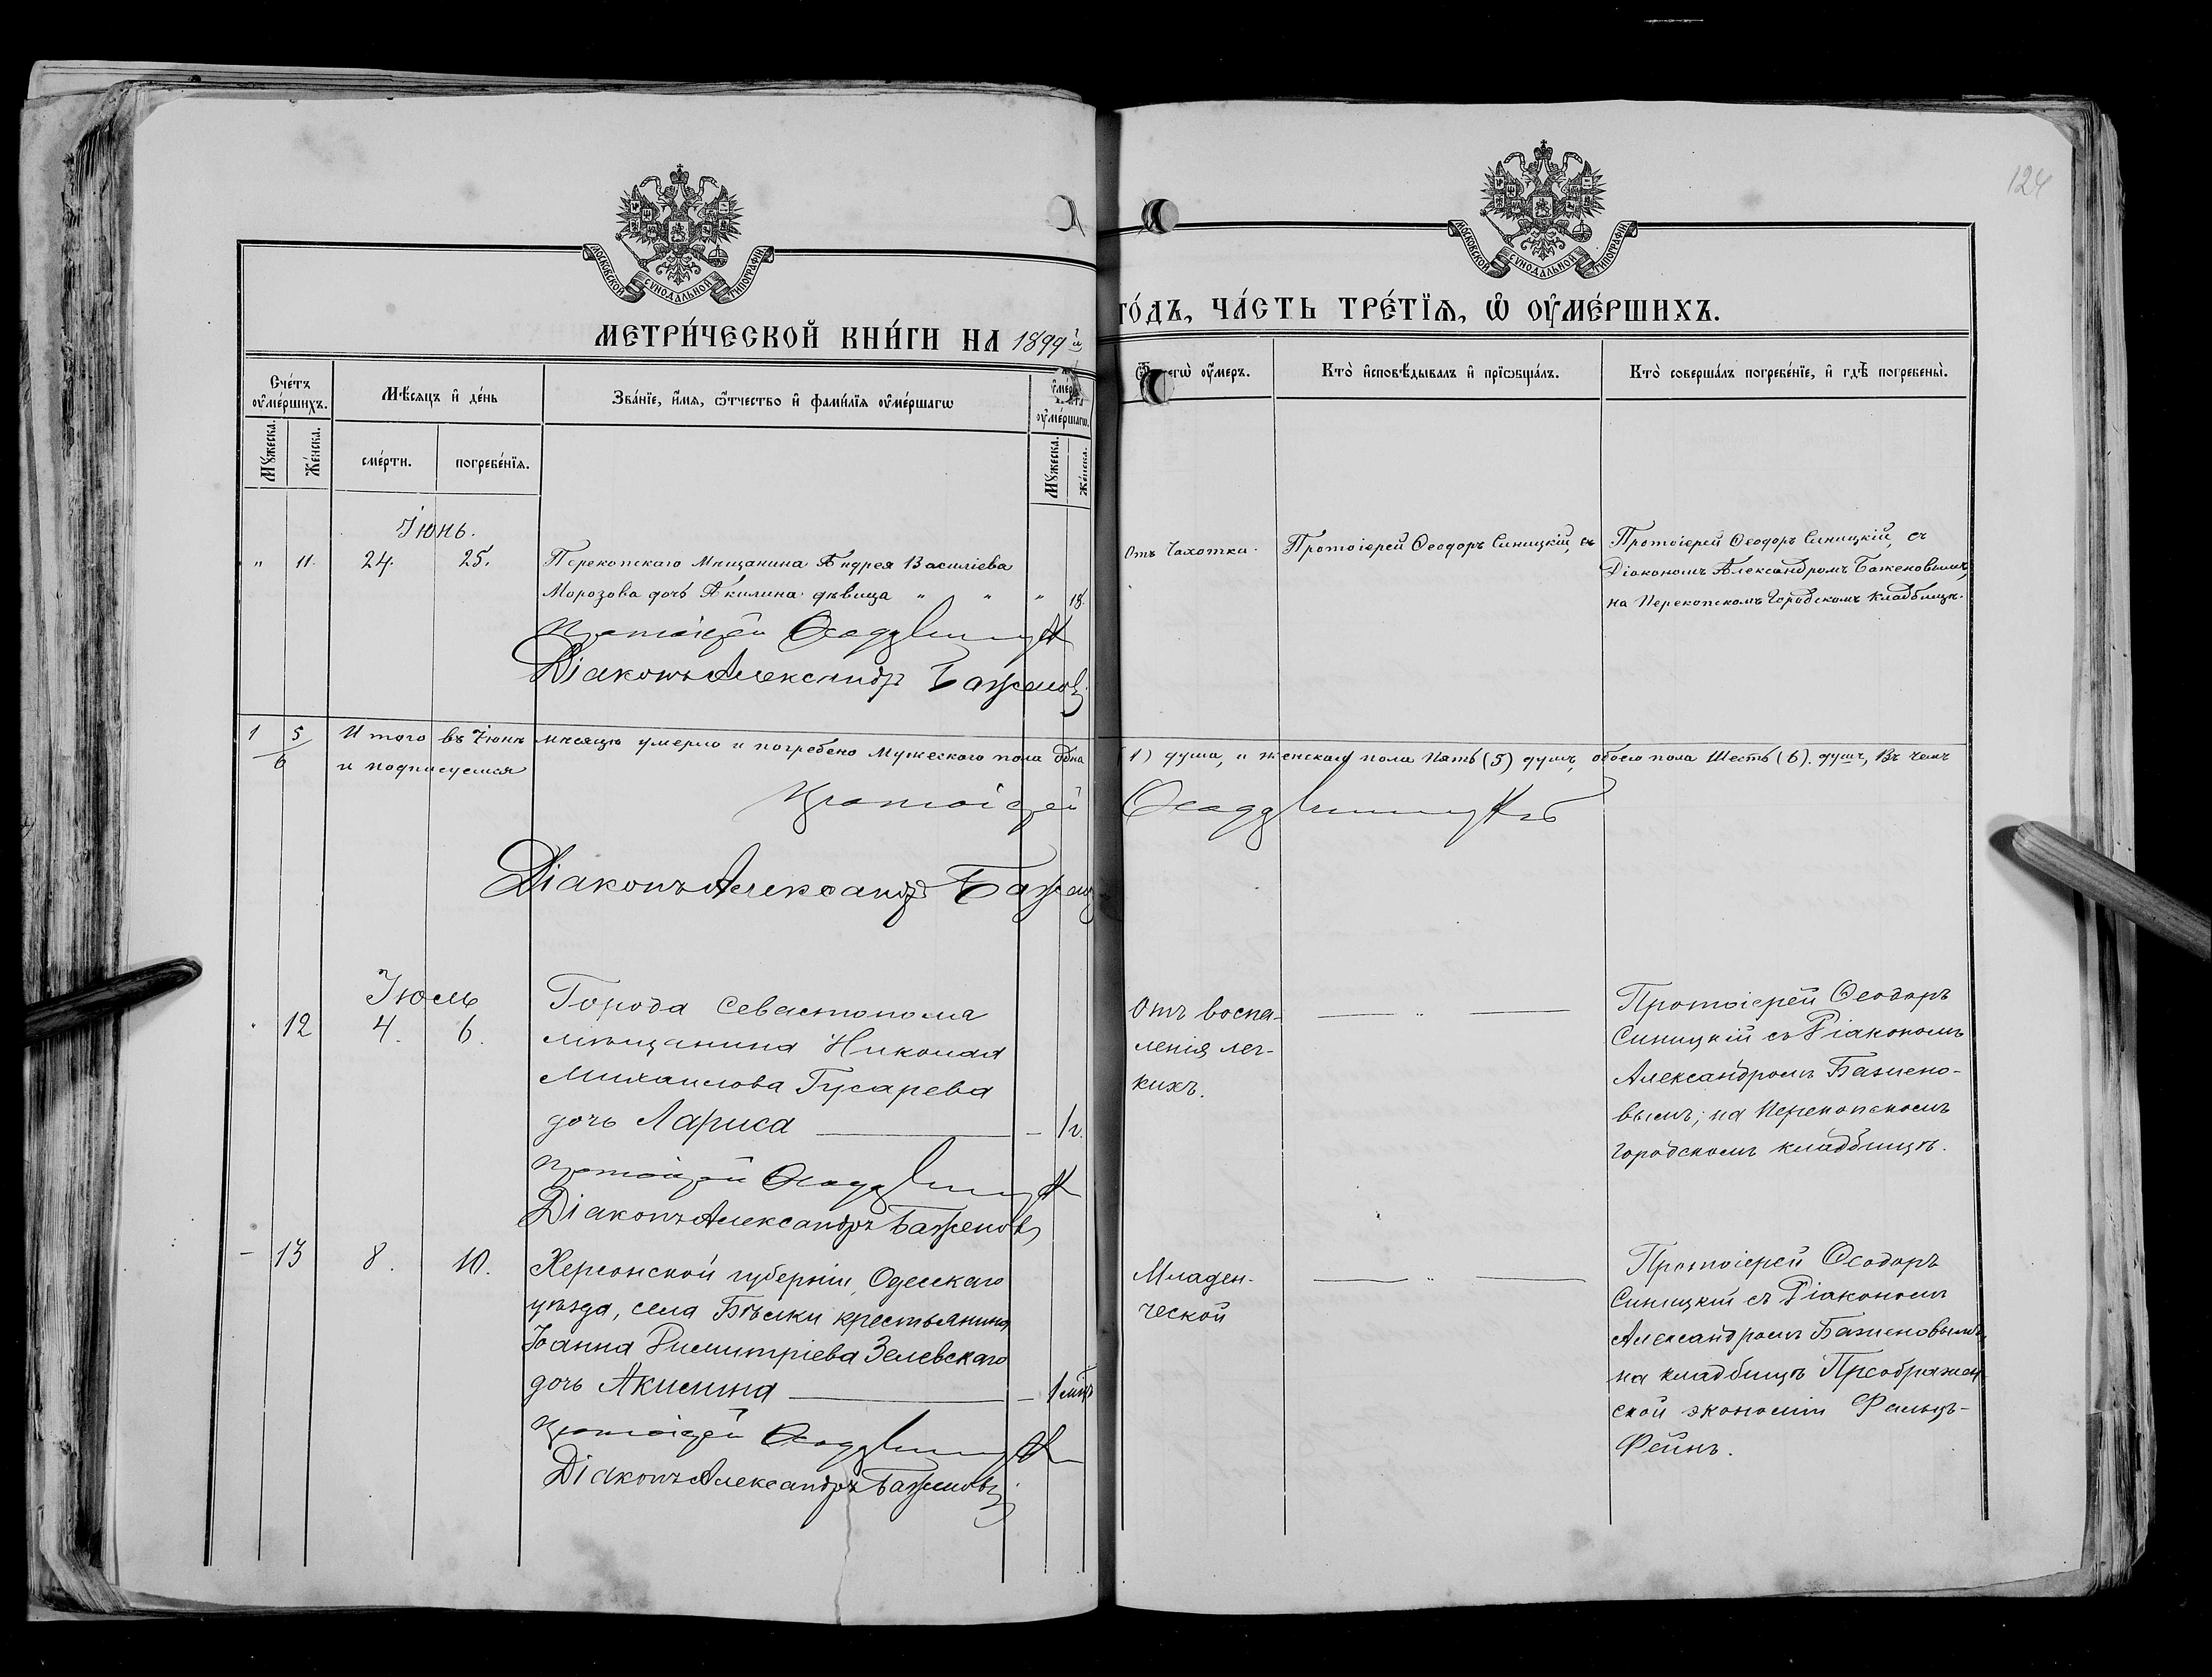 124
МОСКОВСКОЙ СУНОДАЛЬНОЙ ТИПОГРАФІИ
МОСКОВСКОЙ СУНОДАЛЬНОЙ ТИПОГРАФІИ
МЕТРИ́ЧЕСКОЙ КНИ́ГИ НА 1899й
ГО́ДЪ, ЧА́СТЬ ТРЕ́ТЇѦ, Ѡ҆ ОУ҆МЕ́РШИХЪ.
Сче́тъ оу҆ме́ршихъ.
Мѣ́сѧцъ и҆ де́нь
Зва́нїе, и҆́мѧ, ѻ҆́тчество и҆ фами́лїѧ оу҆ме́ршагѡ
оу҆ме́ршагѡ.
оу҆́меръ.
Кто̀ и҆сповѣ́дывалъ и҆ прїѡбща́лъ.
Кто̀ соверша́лъ погребе́нїе, и҆ гдѣ̀ погребены̀.
Мꙋ́жеска.
Же́нска.
сме́рти.
погребе́нїѧ.
Мꙋ́жеска.
Же́нска.
Іюнь.
" 11. 24. 25. Перекопскаго Мѣщанина Андрея Василіева
Морозова дочь Акилина дѣвица " " " 18.
Протоіерей Ѳеодоръ Синицкій
Діаконъ Александръ Баженовъ
Отъ Чахотки. Протоіерей Ѳеодоръ Синицкій, съ
Протоіерей Ѳеодоръ Синицкій, съ
Діакономъ Александромъ Баженовымъ,
на Перекопскомъ Городскомъ Кладбищѣ.
1 5 Итого въ Іюнѣ мѣсяцѣ умерло и погребено Мужескаго пола одна (1) душа, и женскаго пола Пять (5) душъ, обоего пола Шесть (6). душъ, Въ чемъ
6 и подписуемся
Протоіерей Ѳеодоръ Синицкій
Діаконъ Александръ Баженовъ
Іюль
12 4. 6. Города Севастополя
мѣщанина Николая
Михаилова Гусарева
дочь Лариса — – 1 г.
Протоіерей Ѳеодоръ Синицкій
Діаконъ Александръ Баженовъ
Отъ воспа-
ленія лег-
кихъ.
— " —
Протоіерей Ѳеодоръ
Синицкій съ Діакономъ
Александромъ Бажено-
вымъ; на Перекопскомъ
городскомъ кладбищѣ.
– 13 8. 10. Херсонской губерніи, Одесскаго
уѣзда, села Бѣлки крестьянина
Іоанна Димитріева Зелевскаго
дочь Акилина — – 1 мѣс
Протоіерей Ѳеодоръ Синицкій
Діаконъ Александръ Баженовъ
Младен-
ческой
— " —
Протоіерей Ѳеодоръ
Синицкій съ Діакономъ
Александромъ Баженовымъ,
на кладбищѣ Преображен-
ской экономіи Фальцъ-
Фейнъ.